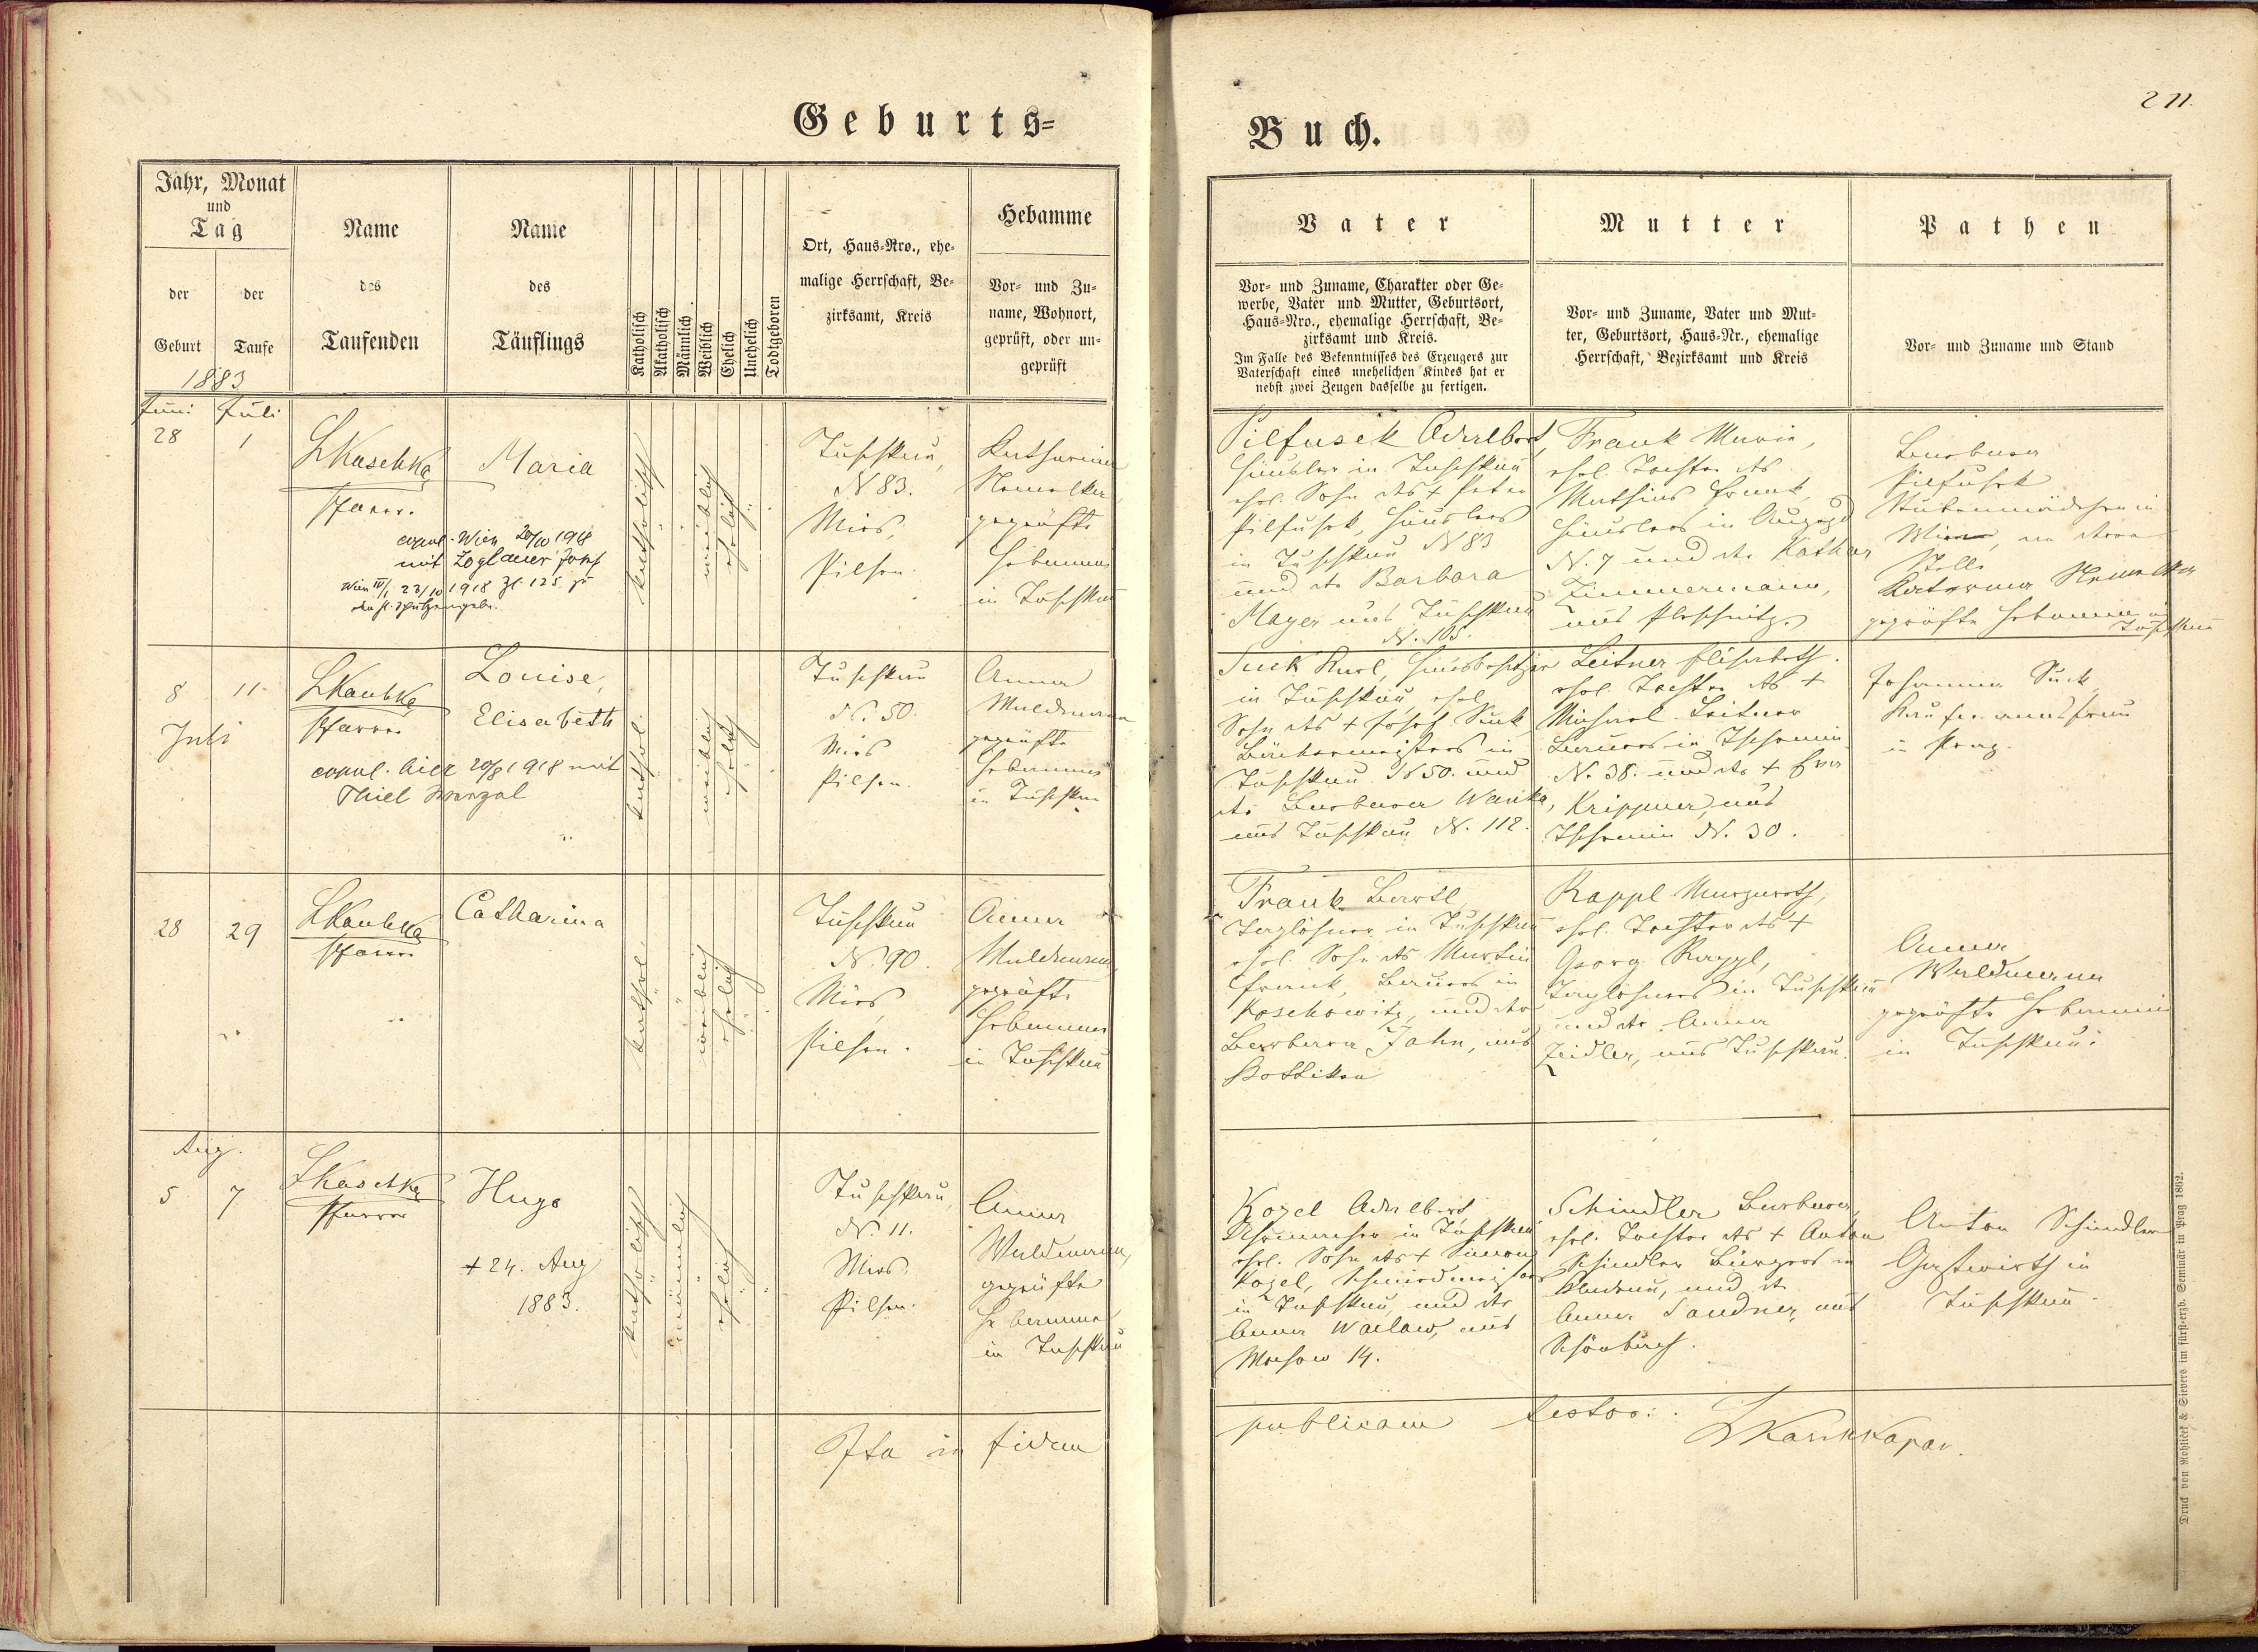 Geburts=
Jahr, Monat
und
Tag
der
Geburt
der
Taufe
Name
des
Taufenden
Name
des
Täuflings
Katholisch
Akatholisch
Männlich
Weiblich
Ehelich
Unehelich
Todtgeboren
Ort, Haus=Nro., ehe=
malige Herrschaft, Be=
zirksamt, Kreis
Hebamme
Vor= und Zu=
name, Wohnort,
geprüft, oder un=
geprüft
1883
Juni Juli
28 1
Pfarrer.
Maria
copul. Wien 20/10 1918
mit Zoglauer Josef
Wien IV/1 23/10 1918 Zl. 125
katholisch
weiblich
ehelich
Tuschkau,
N 83.
Mies,
Pilsen.
Katharina
geprüfte
Hebamme
in Tuschkau
8 11
Juli
Pfarrer
Louise,
Elisabeth
copul. hier 20/8 1918 mit
Thiel Wenzel
kathol.
weiblich
ehelich
Tuschkau
N. 50.
Mies
Pilsen.
Anna
Waldmann
geprüfte
Hebamme
in Tuschkau
28 29
Pfarrer
Catharina
kathol.
weiblich
ehelich
Tuschkau
N. 90.
Mies,
Pilsen.
Anna
Waldmann,
geprüfte
Hebamme
in Tuschkau
Aug.
5 7
Pfarrer
Hugo
+ 24. Aug
1883.
katholisch
männlich
ehelich
Tuschkau
N. 11.
Mies.
Pilsen.
Anna
Waldmann,
geprüfte
Hebamme
in Tuschkau
Ita in fidem
Buch.
211.
Vater
Vor= und Zuname, Charakter oder Ge=
werbe, Vater und Mutter, Geburtsort,
Haus=Nro., ehemalige Herrschaft, Be=
zirksamt und Kreis.
Im Falle des Bekenntnisses des Erzeugers zur
Vaterschaft eines unehelichen Kindes hat er
nebst zwei Zeugen dasselbe zu fertigen.
Mutter
Vor= und Zuname, Vater und Mut=
ter, Geburtsort, Haus=Nr., ehemalige
Herrschaft, Bezirksamt und Kreis
Pathen
Vor= und Zuname und Stand
Pilfusek Adalbert,
Häusler in Tuschkau
ehel. Sohn des + Peter
Pilfusek, Häuslers
in Tuschkau N 83
und der Barbara
Mayer aus Tuschkau
N. 105.
Frank Maria,
ehel. Tochter des
Mathias Frank,
Häuslers in
N. 7 und der Kathar
Zimmermann,
aus Pleschnitz.
Barbara
Pilfusek
Stubenmädchen in
Wien, an deren
Stelle
geprüfte Hebamme in
Tuschkau
Suck Karl, Hausbesitzer
in Tuschkau, ehel.
Sohn des + Josef Suck
Bäckermeisters in
Tuschkau N 50. und
der Barbara Wanka,
aus Tuschkau N. 112.
Leitner Elisabeth.
ehel. Tochter des +
Michael Leitner
Bauers in Tschemin
N. 38. und der + Eva
Krippner, aus
Tschemin N. 30.
Johanna Suck,
Kaufmannsfrau
in Prag.
Frank Bartl,
Taglöhner in Tuschkau
ehel. Sohn des Martin
Frank, Bauers in
Koschowitz, und der
Barbara Jahn, aus
Rappl Margareth,
ehel. Tochter des +
Georg Rappl,
Taglöhners in Tuschkau
und der Anna
Zeidler, aus Tuschkau.
Anna
Waldmann
geprüfte Hebamme
in Tuschkau.
Kozel Adalbert
in Tuschkau
ehel. Sohn des + Simon
Kozel, Schmiedmeisters
in Tuschkau, und der
Anna Waclaw, aus
14.
Schindler Barbara
ehel. Tochter des + Anton
Schindler Bürgers in
und der
Anna Sandner, aus
Anton Schindler
Gastwirth in
Tuschkau.
publicam testor.
Druck von Rohliček & Sievers im fürst=erzb. Seminär in Prag 1862.